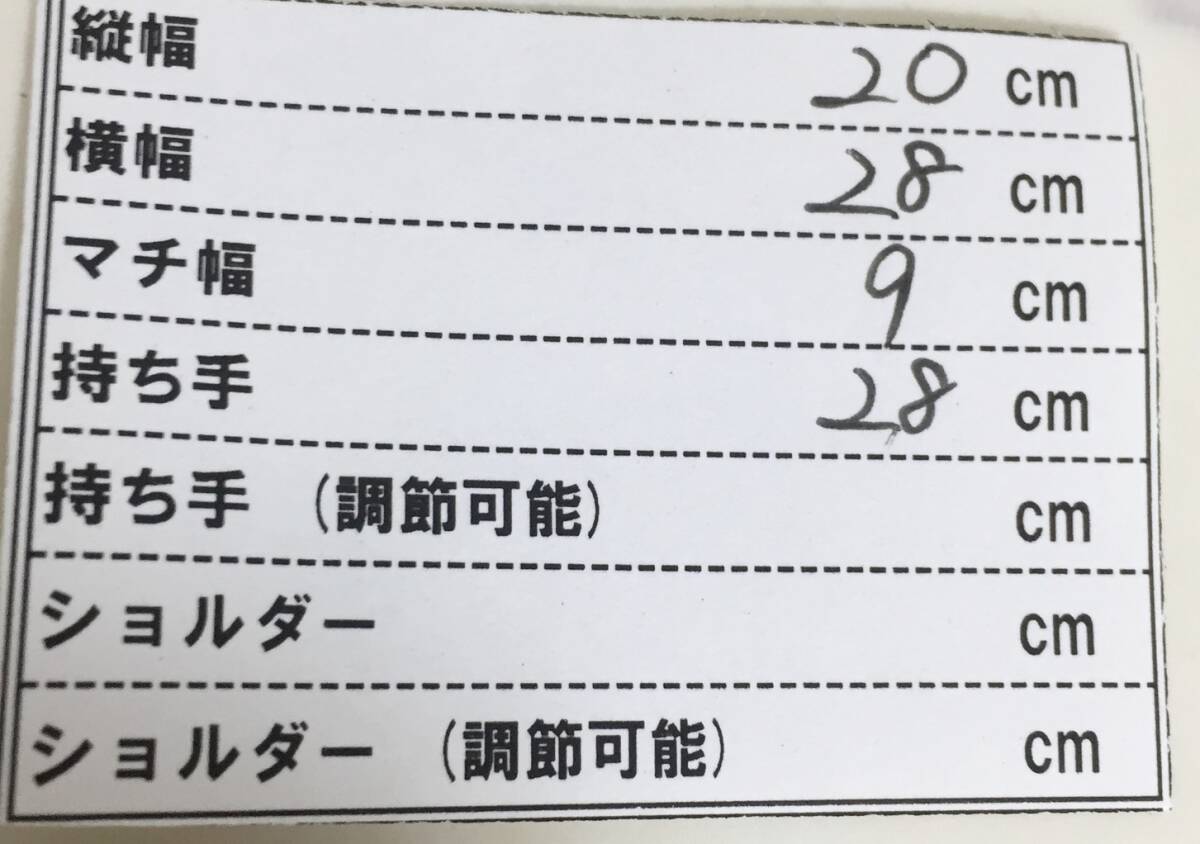 縦幅 20 cm
横幅 28 cm
マチ幅 9 cm
持ち手 28 cm
持ち手 (調節可能) cm
ショルダー cm
ショルダー (調節可能) cm